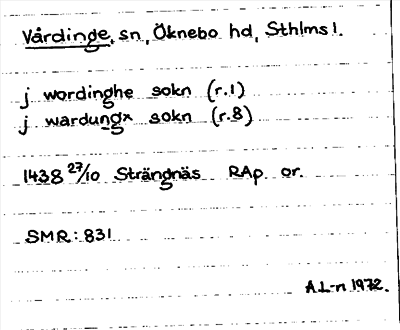 Vårdinge, sn, Öknebo hd, Sthlms l.
j wordinghe sokn (r.1)
j wardungx sokn (r.8)
1438 27/10 Strängnäs RAp or.
SMR: 831
A.L-n 1972.